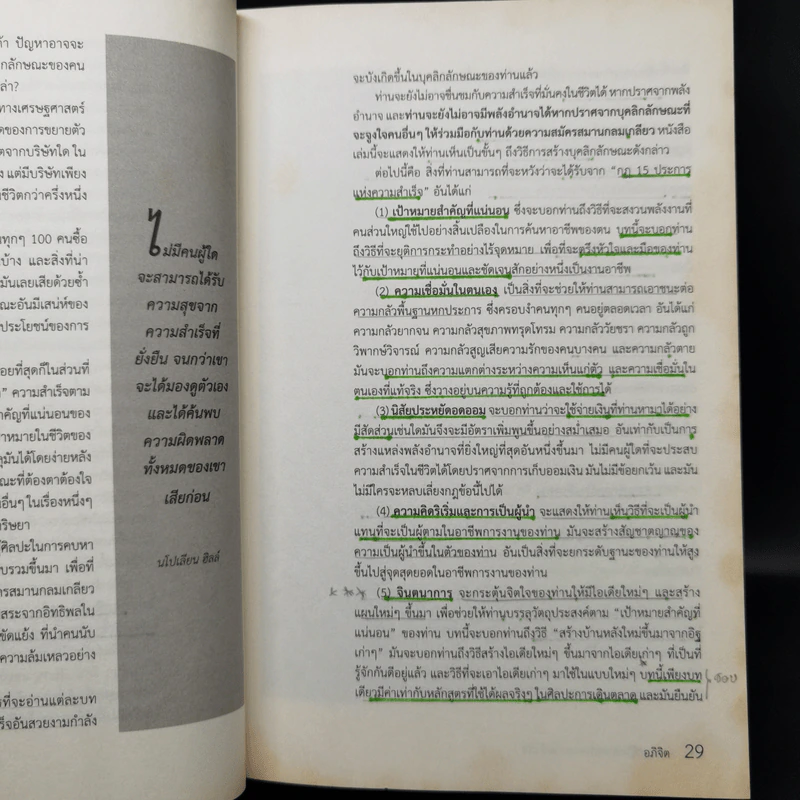 ก้า ปัญหาอาจจะ
กลักษณะของคน
ล่า?
ทางเศรษฐศาสตร์
ดของการขยายตัว
ตจากบริษัทใด ใน
ง แต่มีบริษัทเพียง
ชีวิตกว่าครึ่งหนึ่ง
นทุกๆ 100 คนซื้อ
บ้าง และสิ่งที่น่า
มันเลยเสียด้วยซ้ำ
ณะอันมีเสน่ห์ของ
ประโยชน์ของการ
อยที่สุดก็ในส่วนที่
” ความสำเร็จตาม
ำคัญที่แน่นอนของ
้าหมายในชีวิตของ
ลุมันได้โดยง่ายหลัง
ณะที่ต้องตาต้องใจ
อื่นๆ ในเรื่องหนึ่งๆ
ริษยา
์ศิลปะในการคบหา
บรวมขึ้นมา เพื่อที่
ครสมานกลมเกลียว
สระจากอิทธิพลใน
ขัดแย้ง ที่นำคนนับ
ความล้มเหลวอย่าง
รที่จะอ่านแต่ละบท
ร็จอันสวยงามกำลัง
ไม่มีคนผู้ใด
จะสามารถได้รับ
ความสุขจาก
ความสำเร็จที่
ยั่งยืน จนกว่าเขา
จะได้มองดูตัวเอง
และได้ค้นพบ
ความผิดพลาด
ทั้งหมดของเขา
เสียก่อน
นโปเลียน ฮิลล์
จะบังเกิดขึ้นในบุคลิกลักษณะของท่านแล้ว
ท่านจะยังไม่อาจชื่นชมกับความสำเร็จที่มั่นคงในชีวิตได้ หากปราศจากพลัง
อำนาจ และท่านจะยังไม่อาจมีพลังอำนาจได้หากปราศจากบุคลิกลักษณะที่
จะจูงใจคนอื่นๆ ให้ร่วมมือกับท่านด้วยความสมัครสมานกลมเกลียว หนังสือ
เล่มนี้จะแสดงให้ท่านเห็นเป็นขั้นๆ ถึงวิธีการสร้างบุคลิกลักษณะดังกล่าว
ต่อไปนี้คือ สิ่งที่ท่านสามารถที่จะหวังว่าจะได้รับจาก “กฎ 15 ประการ
แห่งความสำเร็จ” อันได้แก่
(1) เป้าหมายสำคัญที่แน่นอน ซึ่งจะบอกท่านถึงวิธีที่จะสงวนพลังงานที่
คนส่วนใหญ่ใช้ไปอย่างสิ้นเปลืองในการค้นหาอาชีพของตน บทนี้จะบอกท่าน
ถึงวิธีที่จะยุติการกระทำอย่างไร้จุดหมาย เพื่อที่จะตรึงหัวใจและมือของท่าน
ไว้กับเป้าหมายที่แน่นอนและชัดเจนสักอย่างหนึ่งเป็นงานอาชีพ
(2) ความเชื่อมั่นในตนเอง เป็นสิ่งที่จะช่วยให้ท่านสามารถเอาชนะต่อ
ความกลัวพื้นฐานหกประการ ซึ่งครอบงำคนทุกๆ คนอยู่ตลอดเวลา อันได้แก่
ความกลัวยากจน ความกลัวสุขภาพทรุดโทรม ความกลัววัยชรา ความกลัวถูก
วิพากษ์วิจารณ์ ความกลัวสูญเสียความรักของคนบางคน และความกลัวตาย
มันจะบอกท่านถึงความแตกต่างระหว่างความเห็นแก่ตัว และความเชื่อมั่นใน
ตนเองที่แท้จริง ซึ่งวางอยู่บนความรู้ที่ถูกต้องและใช้การได้
(3) นิสัยประหยัดอดออม จะบอกท่านว่าจะใช้จ่ายเงินที่ท่านหามาได้อย่าง
มีสัดส่วนเช่นใดมันจึงจะมีอัตราเพิ่มพูนขึ้นอย่างสม่ำเสมอ อันเท่ากับเป็นการ
สร้างแหล่งพลังอำนาจที่ยิ่งใหญ่ที่สุดอันหนึ่งขึ้นมา ไม่มีคนผู้ใดที่จะประสบ
ความสำเร็จในชีวิตได้โดยปราศจากการเก็บออมเงิน มันไม่มีข้อยกเว้น และมัน
ไม่มีใครจะหลบเลี่ยงกฎข้อนี้ไปได้
(4) ความคิดริเริ่มและการเป็นผู้นำ จะแสดงให้ท่านเห็นวิธีที่จะเป็นผู้นำ
แทนที่จะเป็นผู้ตามในอาชีพการงานของท่าน มันจะสร้างสัญชาตญาณของ
ความเป็นผู้นำขึ้นในตัวของท่าน อันเป็นสิ่งที่จะยกระดับฐานะของท่านให้สูง
ขึ้นไปสู่จุดสุดยอดในอาชีพการงานของท่าน
(5) จินตนาการ จะกระตุ้นจิตใจของท่านให้มีไอเดียใหม่ๆ และสร้าง
แผนใหม่ๆ ขึ้นมา เพื่อช่วยให้ท่านบรรลุวัตถุประสงค์ตาม “เป้าหมายสำคัญที่
แน่นอน” ของท่าน บทนี้จะบอกท่านถึงวิธี “สร้างบ้านหลังใหม่ขึ้นมาจากอิฐ
เก่าๆ” มันจะบอกท่านถึงวิธีสร้างไอเดียใหม่ๆ ขึ้นมาจากไอเดียเก่าๆ ที่เป็นที่
รู้จักกันดีอยู่แล้ว และวิธีที่จะเอาไอเดียเก่าๆ มาใช้ในแบบใหม่ๆ บทนี้เพียงบท
เดียวมีค่าเท่ากับหลักสูตรที่ใช้ได้ผลจริงๆ ในศิลปะการเดินตลาด และมันยืนยัน
ชอบ
อภิจิต 29